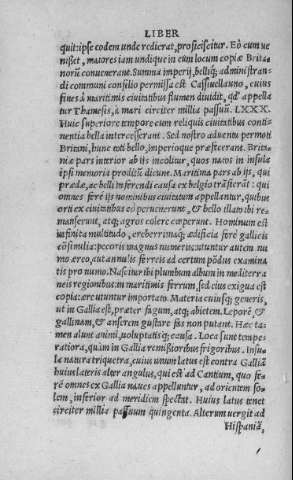 LIBER
quit: ipse eodem unde redierat, proficiscitur. Eò cum ue
nißet, maiores iam undique in eum locum copiæ Britã
norũ conuenerant. Summa imperij, belliq́; administran
di communi consilio permissa est Cassiuellauno, cuius
fines à maritimis ciuitatibus flumen diuidit, qđ appella
tur Thamesis, à mari circiter millia passuũ. LXXX.
Huic superiore tempore cum reliquis ciuitatibus conti-
nentia bella intercesserant. Sed nostro aduentu permoti
Britãni, hunc toti bello, imperioque præfecerant. Britã-
niæ pars interior ab ijs incolitur, quos natos in insula
ipsi memoria proditũ dicunt. Maritima pars ab ijs, qui
prædæ, ac belli inferendi causa ex belgio trãsierãt: qui
omnes ferè ijs nominibus ciuitatum appellantur, quibus
orti ex ciuitatibus eò peruenerunt, & bello illato ibi re
manserunt, atq; agros colere cœperunt. Hominum est
infinita multitudo, creberrimaq́; ædificia ferè gallicis
cõsimilia: pecoris magnus numerus: utuntur autem nu
mo æreo, aut annulis ferreis ad certum põdus examina
tis pro numo. Nascitur ibi plumbum album in mediterra
neis regionibus: in maritimis ferrum, sed eius exigua est
copia: ære utuntur importato. Materia cuiusq́; generis,
ut in Gallia est, præter fagum, atq; abietem. Leporẽ, &
gallinam, & anserem gustare fas non putant. Hæc ta-
men alunt animi, uoluptatisq́; causa. Loca sunt tempe-
ratiora, quàm in Gallia remißioribus frigoribus. Insu-
la natura triquetra, cuius unum latus est contra Galliã
huius lateris alter angulus, qui est ad Cantium, quo fe-
rè omnes ex Gallia naues appelluntur, ad orientem so-
lem, inferior ad meridiem spectat. Huius latus tenet
circiter millia passuum quingenta. Alterum uergit ad
Hispaniã,